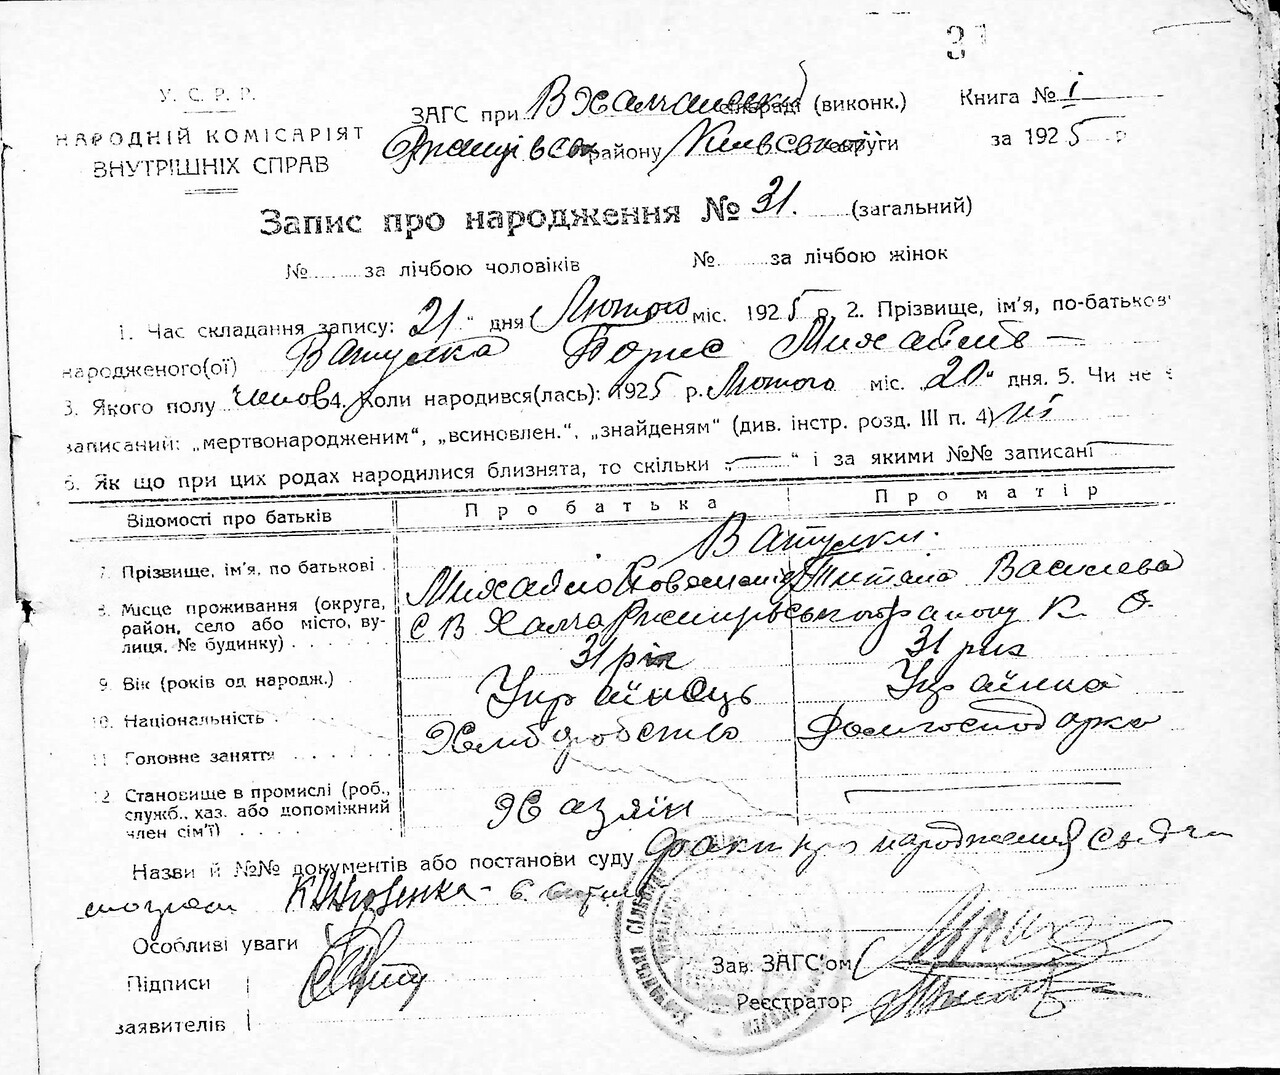 31
У. С. Р. Р.
НАРОДНІЙ КОМІСАРІЯТ
ВНУТРІШНІХ СПРАВ
ЗАГС при сільраді (виконк.)
району Київської округи
Книга № 1
за 1925 р
Запис про народження № 31. (загальний)
№ за лічбою чоловіків № за лічбою жінок
1. Час складання запису: 21 " дня Лютого міс. 1925 р. 2. Прізвище, ім'я, по-батьков
народженого(ої) Ватулка Борис Михайлів —
3. Якого полу чолов 4. Коли народився(лась): 1925 р. Лютого міс. „20" дня. 5. Чи не є
записаний: „мертвонародженим", „всиновлен.", „знайденям" (див. інстр. розд. III п. 4) ні
6. Як що при цих родах народилися близнята, то скільки „—" і за якими №№ записані —
Відомості про батьків Про батька Про матір
Ватулки.
7. Прізвище, ім'я, по батькові Михайло Василева
8. Місце проживання (округа, район, село або місто, вулиця, № будинку) с В Халча району К. О.
9. Вік (років од народж.) 31 рік 31 рік
10. Національність Українець Українка
11. Головне заняття Хліборобство Домгосподарка
12. Становище в промислі (роб., служб., хаз. або допоміжний член сім'ї) Хазяїн —
Назви й №№ документів або постанови суду факт про народження
Особливі уваги
Підписи
заявителів
Зав. ЗАГС'ом
Реєстратор